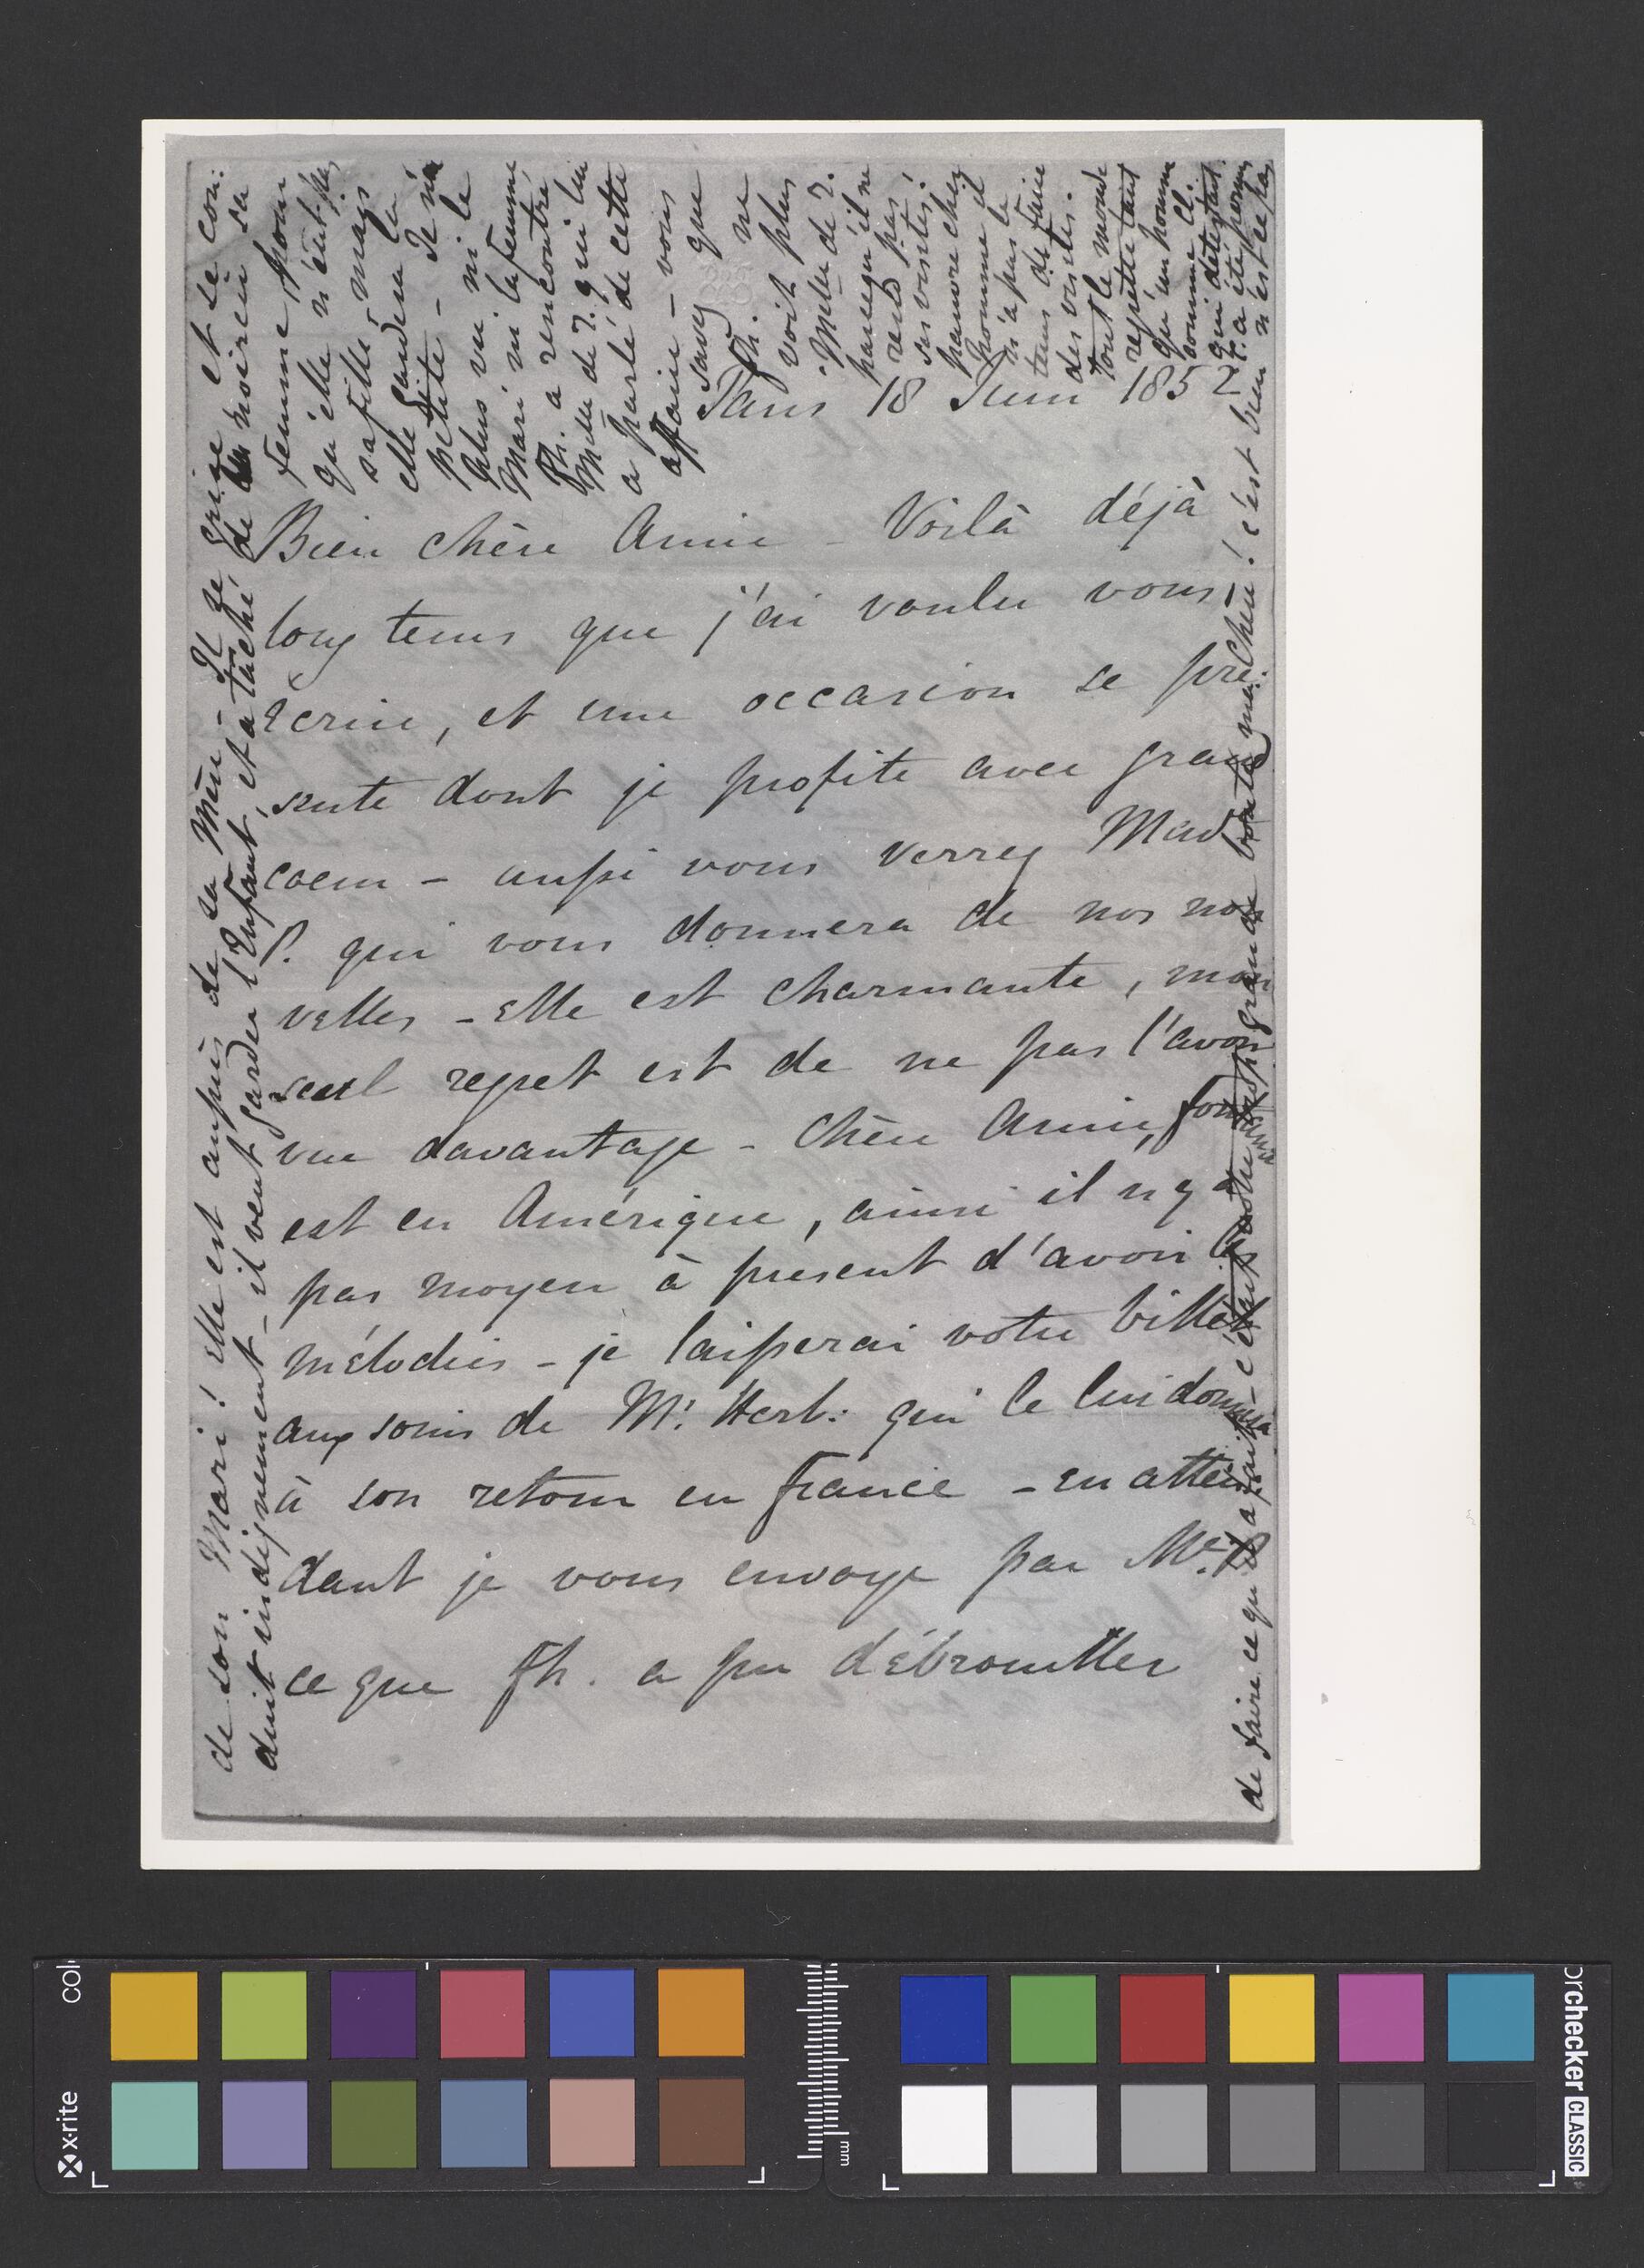 Paris 18 Juin 1852
Bien chère Amie – Voilà déjà
long tems que j'ai voulu vous
écrire, et une occasion se pré:
sente dont je profite avec grand
coeur – aussi vous verrez Mad
P. qui vous donnera de nos nou
velles – Elle est charmante, mon
seul regret est de ne pas l'avoir
vue davantage – Chère Amie,
est en Amérique, ainsi il n'y a
pas moyen à présent d'avoir les
mélodies – je laisserai votre billet
aux soins de Mr. Herb: qui le lui donnera
à son retour en France – en atten
dant je vous envoye par Me. P
ce que Th. a pu débrouiller
de son Mari! Elle est auprès de sa Mère – Il se grise et se con:
duit indignement – il veut garder l'Enfant, et a tâché de noircir sa
femme pour
qu'elle n'eut pas
sa fille mais
elle gardera la
petite – Je n'ai
plus vu ni le
Mari ni la femme
Th. a rencontré
Melle de ?. qui lui
a parlé de cette
affaire – vous
savez que
Th. ne
voit plus
Melle de ?.
parcequ'il ne
rend pas
ses visites!
pauvre cher
homme il
n'a pas le
tems de faire
des visites.
tout le monde
regrette tant
qu'un homme
comme Cl.
qui détestait
n'est ce pas
de faire ce qu'il a fait – c'était votre trop grande bonté ma Chère! c'est bien
x-rite
mm
colorchecker CLASSIC